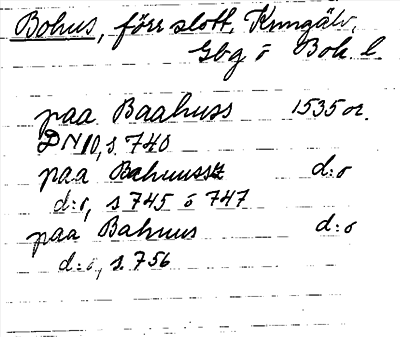 Bohus, förr slott, Kungälv,
Gbg o Boh. l
paa Baahuss 1535 or.
DN 10, s. 740
paa Bahuussz d:o
d:o, s 745 o 747
paa Bahuus d:o
d:o, s. 756